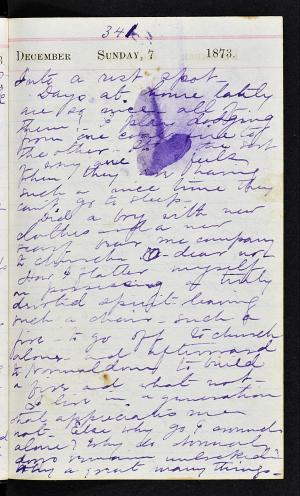 341
DECEMBER SUNDAY, 7 1873.
into a rest spot.
Days at home lately
are so all to
them - I sleep
from one to
the other - rest
any one feels
when they are having
such a nice time they
can't go to sleep.
Did a boy with new
clothes and a new
ever me company
to church. O dear not
How I flatter myself
on possessing a truly
devoted spirit - leaving
such a chair - such a
fire - to go off to church
alone. And afterward
to Normaldom, to build
a fire and what not -
I live in a generation
that appreciates me
not - Else why go I around
alone? Why do Normal
doors remain unlocked?
Why a great many things -